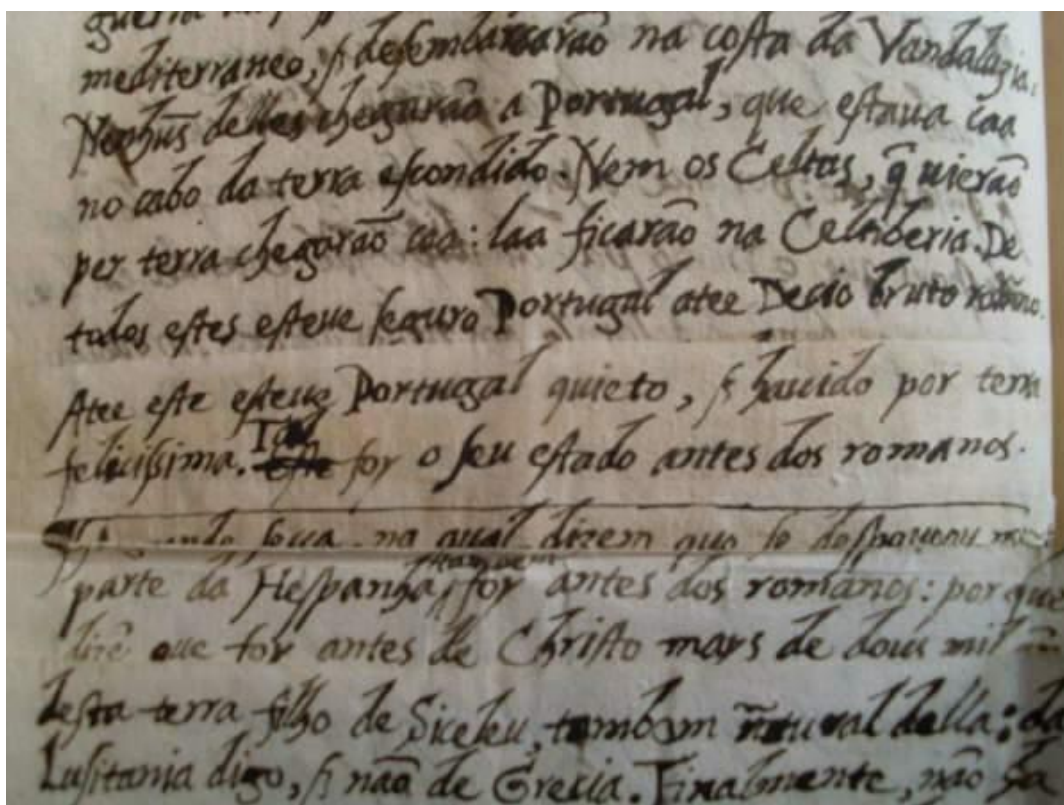 guerra
mediterraneo, & desembarcarão na costa da Vandaluzia.
Nenhũs delles chegarão a Portugal, que estaua caa
no cabo da terra escondido. Nem os Celtas, q̃ uierão
per terra chegarão caa: laa ficarão na Celtiberia. De
todos estes esteue seguro Portugal atee Decio bruto romano.
Atee este esteue Portugal quieto, & hauido por terra
felicissima. Tal foy o seu estado antes dos romanos.
seca na qual dizem que se despouou
parte da Hespanha, tambem foy antes dos romanos: porque
dizẽ que foy antes de Christo mays de dous mil
desta terra filho de Siceleu, tambem natural della: da
Lusitania digo, & não de Grecia. Finalmente, não ha